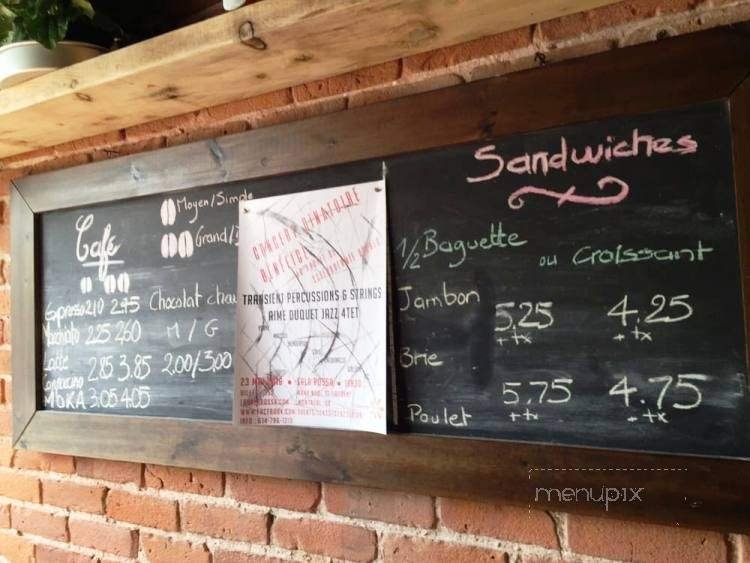 Café
Moyen/Simple
Grand/
Espresso 2.10 2.45
Macchiato 2.25 2.60
Latte
Cappuccino 2.85 3.85
MOKA 3.05 4.05
Chocolat chau
M / G
2.00/3.00
CONCERT DINATOIRE
TRANSIENT PERCUSSIONS & STRINGS
AIME DUQUET JAZZ 4TET
23 MAI • SALA ROSSA •
MONTREAL, QC
INFO : 514-796-1213
Sandwiches
1/2 Baguette ou Croissant
Jambon
5.25 4.25
+ tx + tx
Brie
5.75 4.75
+ tx + tx
Poulet
menupix